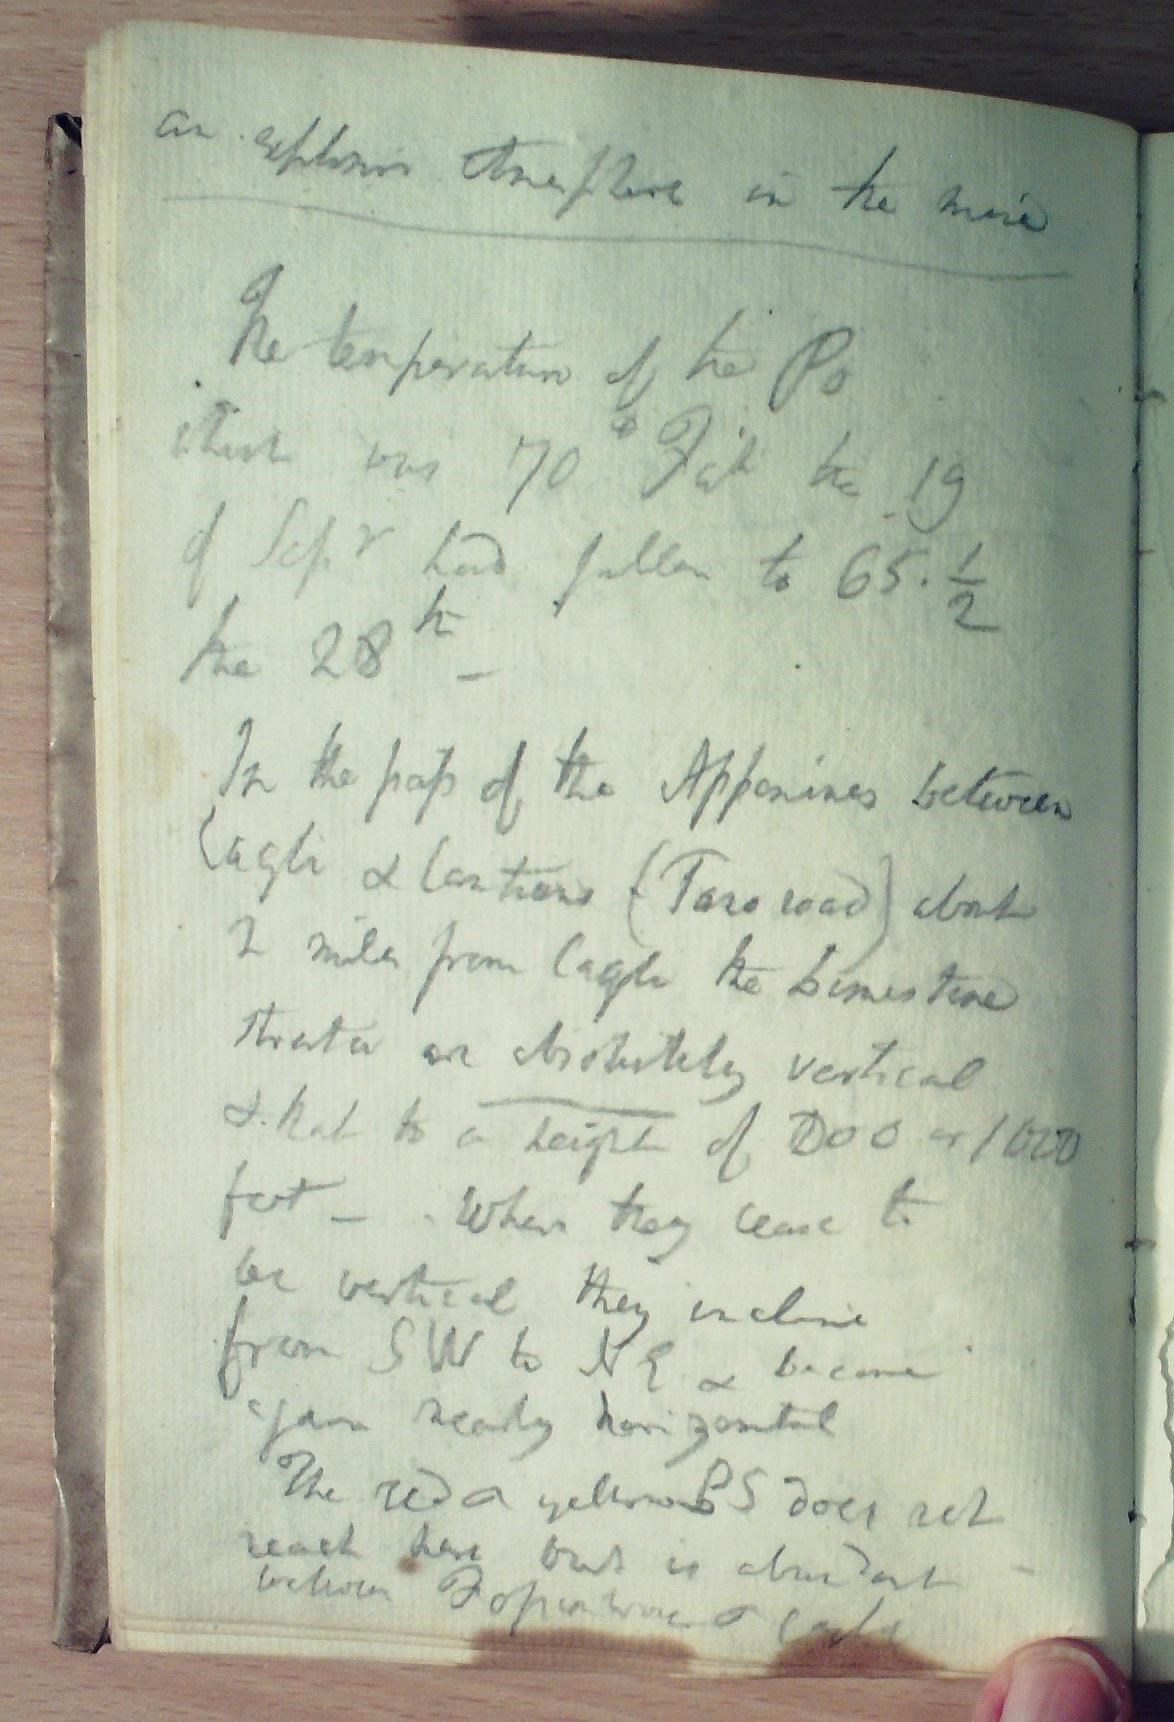 an explosive atmosphere in the mine
The temperature of the Po
which was 70° Fah the 19
of Sepr had fallen to 65.½
the 28th –
In the pass of the Appenines between
Cagli & Cantiano (road) about
2 miles from Cagli the Limestone
strata are absolutely vertical
& that to a height of or 1000
feet – When they cease to
be vertical they incline
from SW to NE & become
again nearly horizontal
The red & yellow does not
reach here but is abundant –
between &